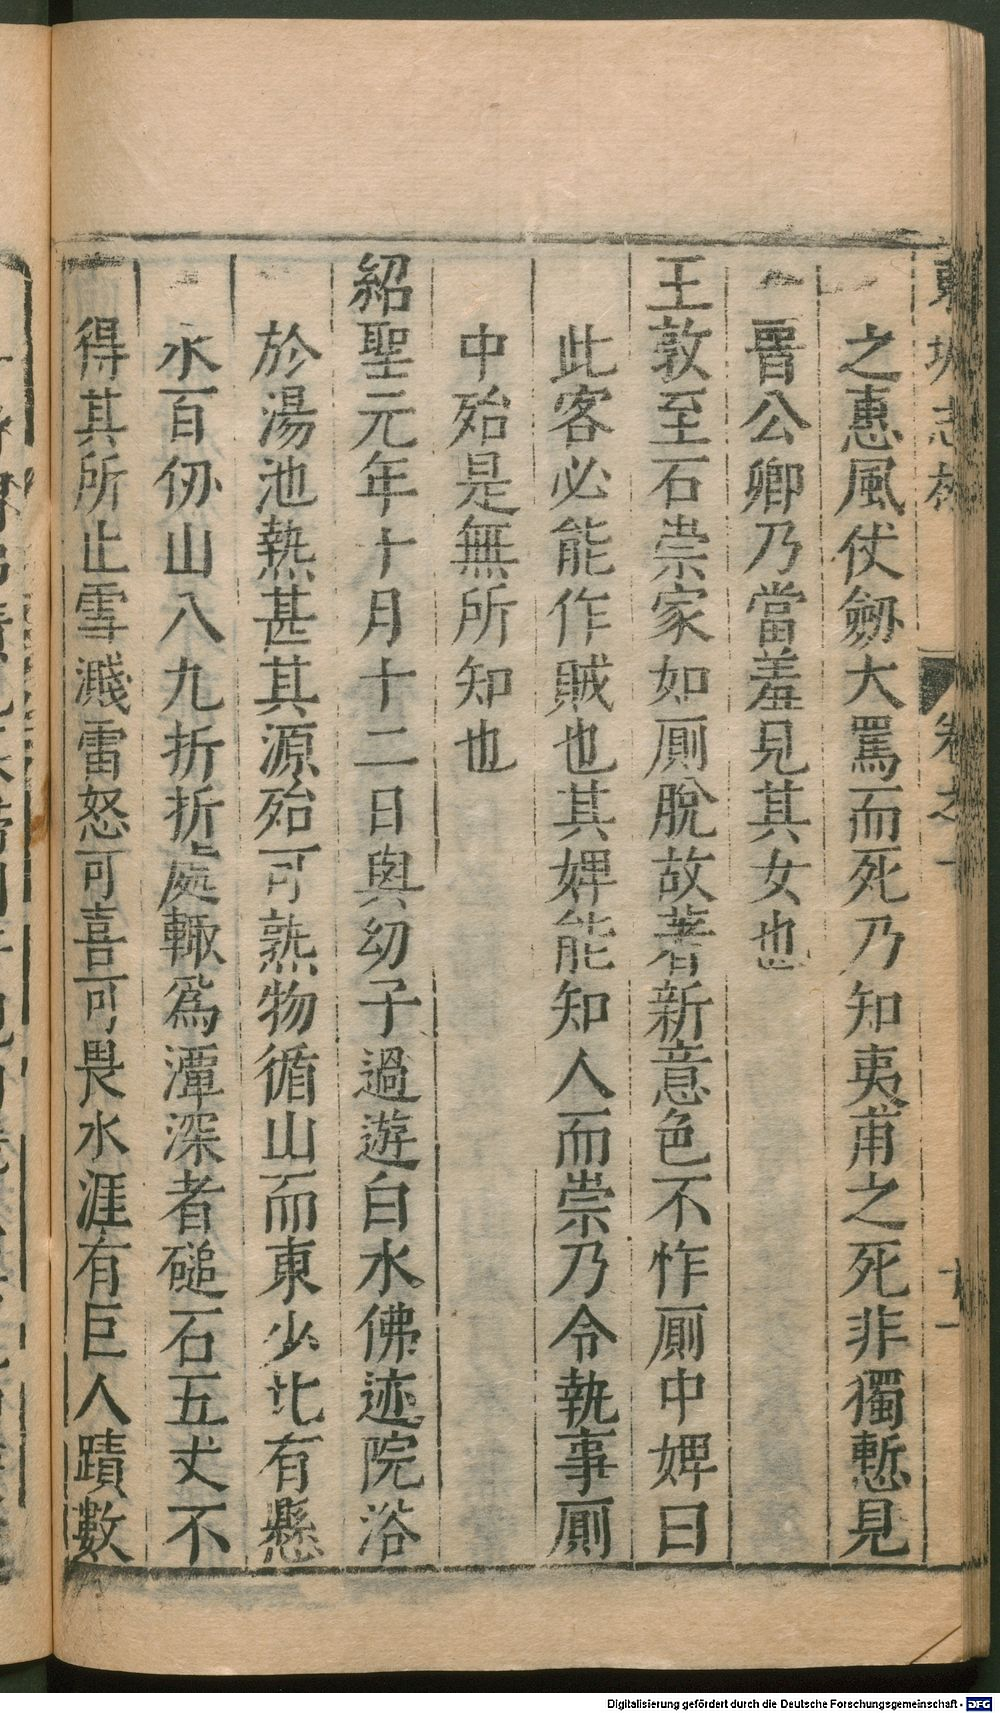 之惠風仗劒大罵而死乃知夷甫之死非獨慙見
晉公卿乃當羞見其女也
王敦至石崇家如厠脫故著新意色不怍厠中婢曰
此客必能作賊也其婢能知人而崇乃令執事厠
中殆是無所知也
紹聖元年十月十二日與幼子過遊白水佛迹院浴
於湯池熱甚其源殆可熟物循山而東少北有懸
水百仞山八九折折處輙爲潭深者磓石五丈不
得其所止雪濺雷怒可喜可畏水涯有巨人蹟數
Digitalisierung gefördert durch die Deutsche Forschungsgemeinschaft - DFG